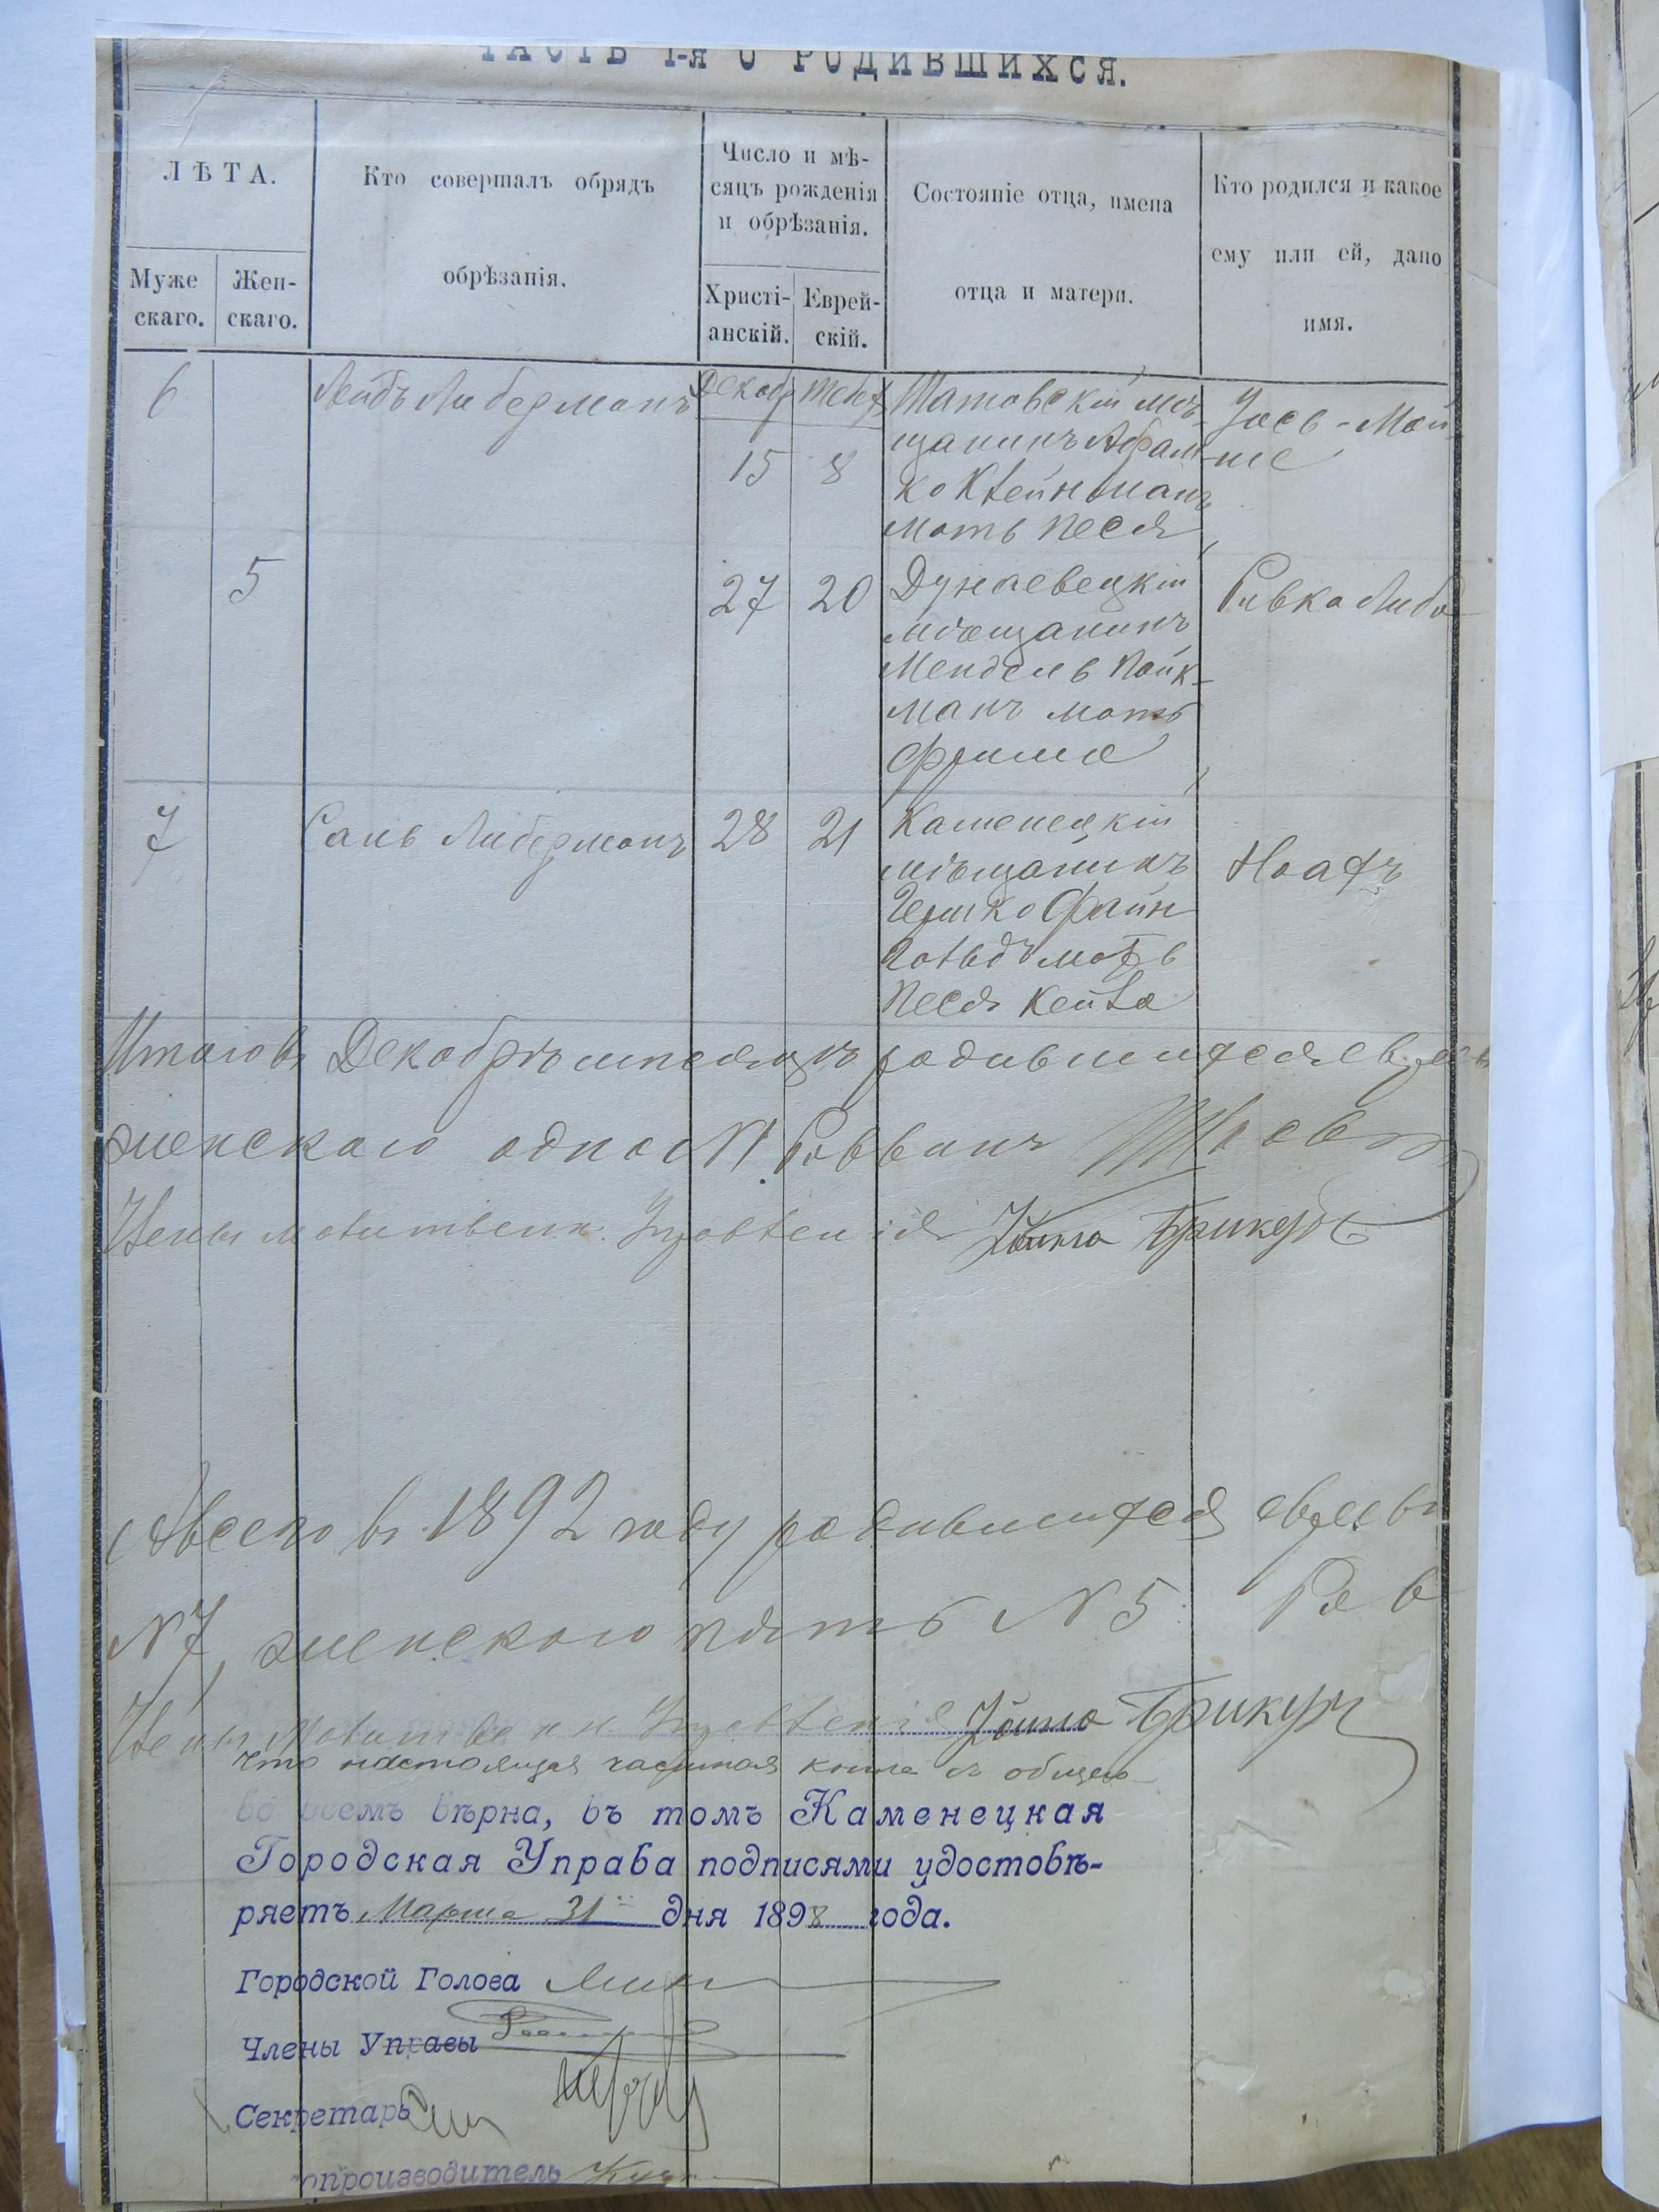 ЧАСТЬ I-я О РОДИВШИХСЯ.
ЛѢТА.
Муже
скаго.
Жен-
скаго.
Кто совершалъ обрядъ
обрѣзанія.
Число и мѣ-
сяцъ рожденія
и обрѣзанія.
Христі-
анскій.
Еврей-
скій.
Состояніе отца, имена
отца и матери.
Кто родился и какое
ему или ей, дано
имя.
6 Лейбъ Либерманъ Декабр Тебет
15 8
Шатовскій мѣ-
щанинъ Абрам-
ко Клейнманъ
мать Песя
Іось-Мой-
ше
5 27 20
Дунаевецкій
мѣщанинъ
Мендель Пайк-
манъ мать
Фрима
Ривка Либа
7 Сань Либерманъ 28 21
Каменецкій
мѣщанинъ
Гершко Файн
гольдъ мать
Песя Кейла
Ноахъ
Итого въ Декабрѣ мѣсяцѣ родившихся евреевъ
женскаго одно N1. Раввинъ
Члены молитвенн. Правленія
Авсего въ 1892 году родившихся евреевъ
N7, женскаго пять N5. Рав
Члены Молитвенн. Правленія
Что настоящая частная книга съ общею
во всемъ вѣрна, въ томъ Каменецкая
Городская Управа подписями удостовѣ-
ряетъ Марта 31 дня 1898 года.
Городской Голова
Члены Управы
Секретарь
опроизводитель